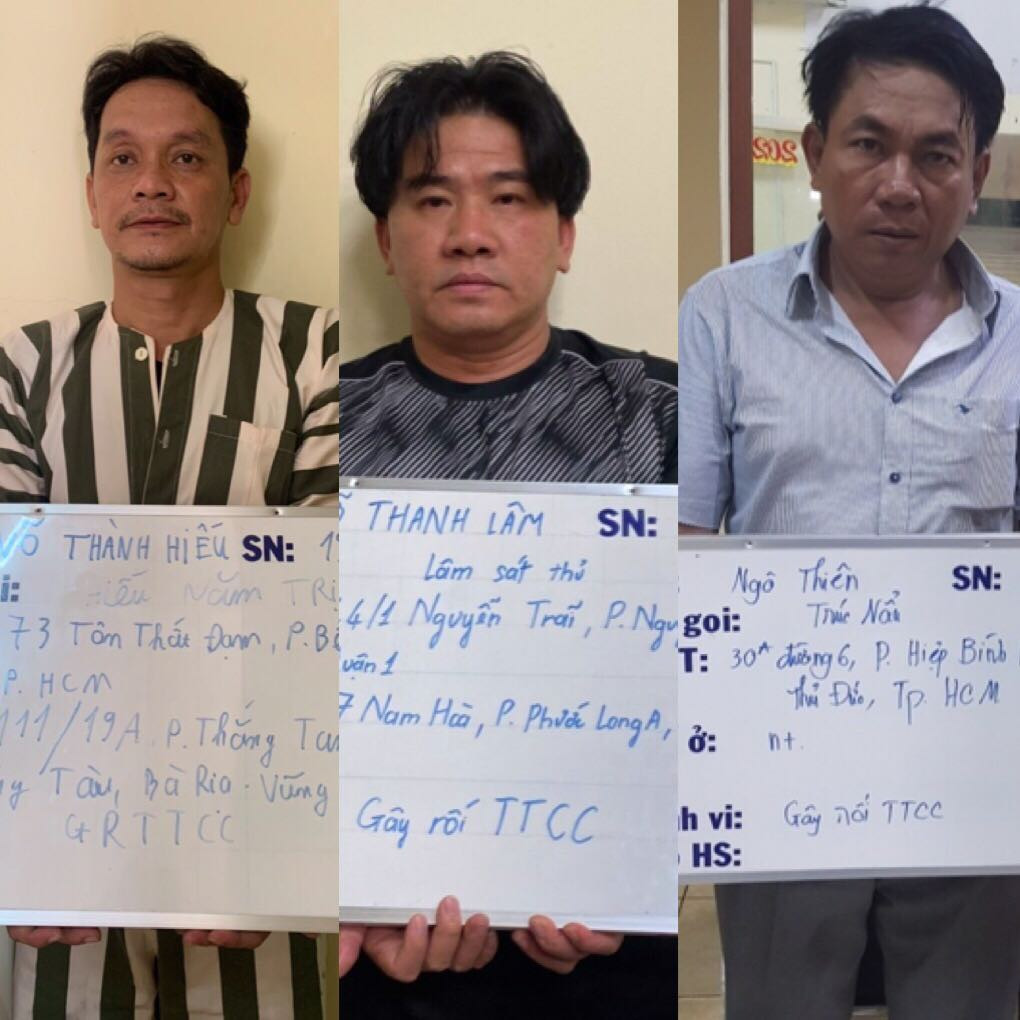 VÕ THÀNH HIẾU SN: 19
i: Hiếu Năm TRI
73 Tôn Thất Đạm, P. Bế
P. HCM
111/19A. P. Thắng Tam
Tàu, Bà Rịa - Vũng
GRTTCC
THANH LÂM SN:
Lâm sát thủ
4/1 Nguyễn Trãi, P. Ngu
uận 1
7 Nam Hoà, P. Phước Long A,
Gây rối TTCC
Ngô Thiên SN:
goi: Trúc Nẩu
T: 30A đường 6, P. Hiệp Bình
Thủ Đức, Tp. HCM
ở: nt.
h vi: Gây rối TTCC
HS: